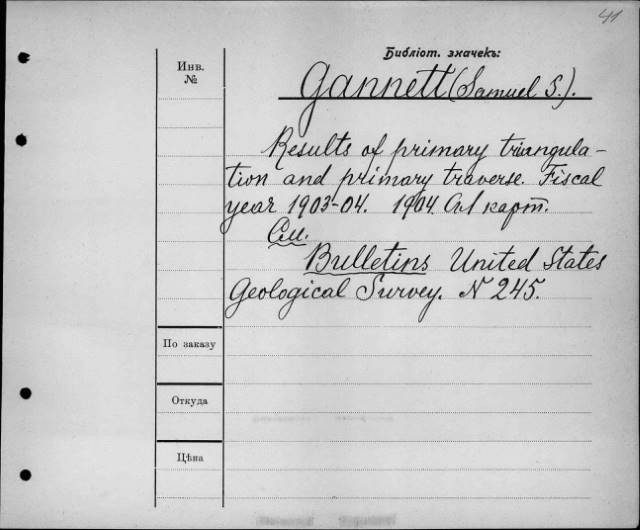 41
Библіот. значекъ:
Инв.
№
Gannett (Samuel S.).
Results of primary triangula-
tion and primary traverse. Fiscal
year 1903-04. 1904. Ct 1 карт.
См.
Bulletins United States
Geological Survey. N 245.
По заказу
Откуда
Цѣна